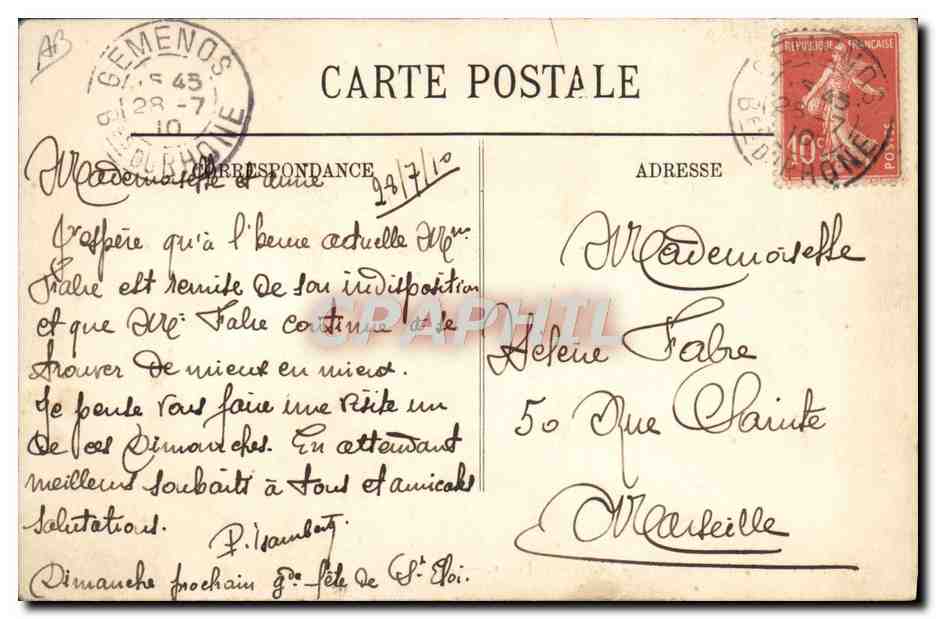 AB
GEMENOS
45
28-7
10
B. DU RHONE
CARTE POSTALE
REPUBLIQUE FRANÇAISE
10c
POSTES
CORRESPONDANCE
ADRESSE
28/7/10
Mademoiselle et amie
J'espère qu'à l'heure actuelle Mme
Fabre est remise de son indisposition
et que Mr Fabre continue à se
trouver de mieux en mieux.
Je pense vous faire une visite un
de ces Dimanches. En attendant
meilleurs souhaits à tous et amicales
salutations.
P. Isambert
Dimanche prochain gde fête de St Eloi.
Mademoiselle
Hélène Fabre
50 Rue Sainte
Marseille
CPAPHIL